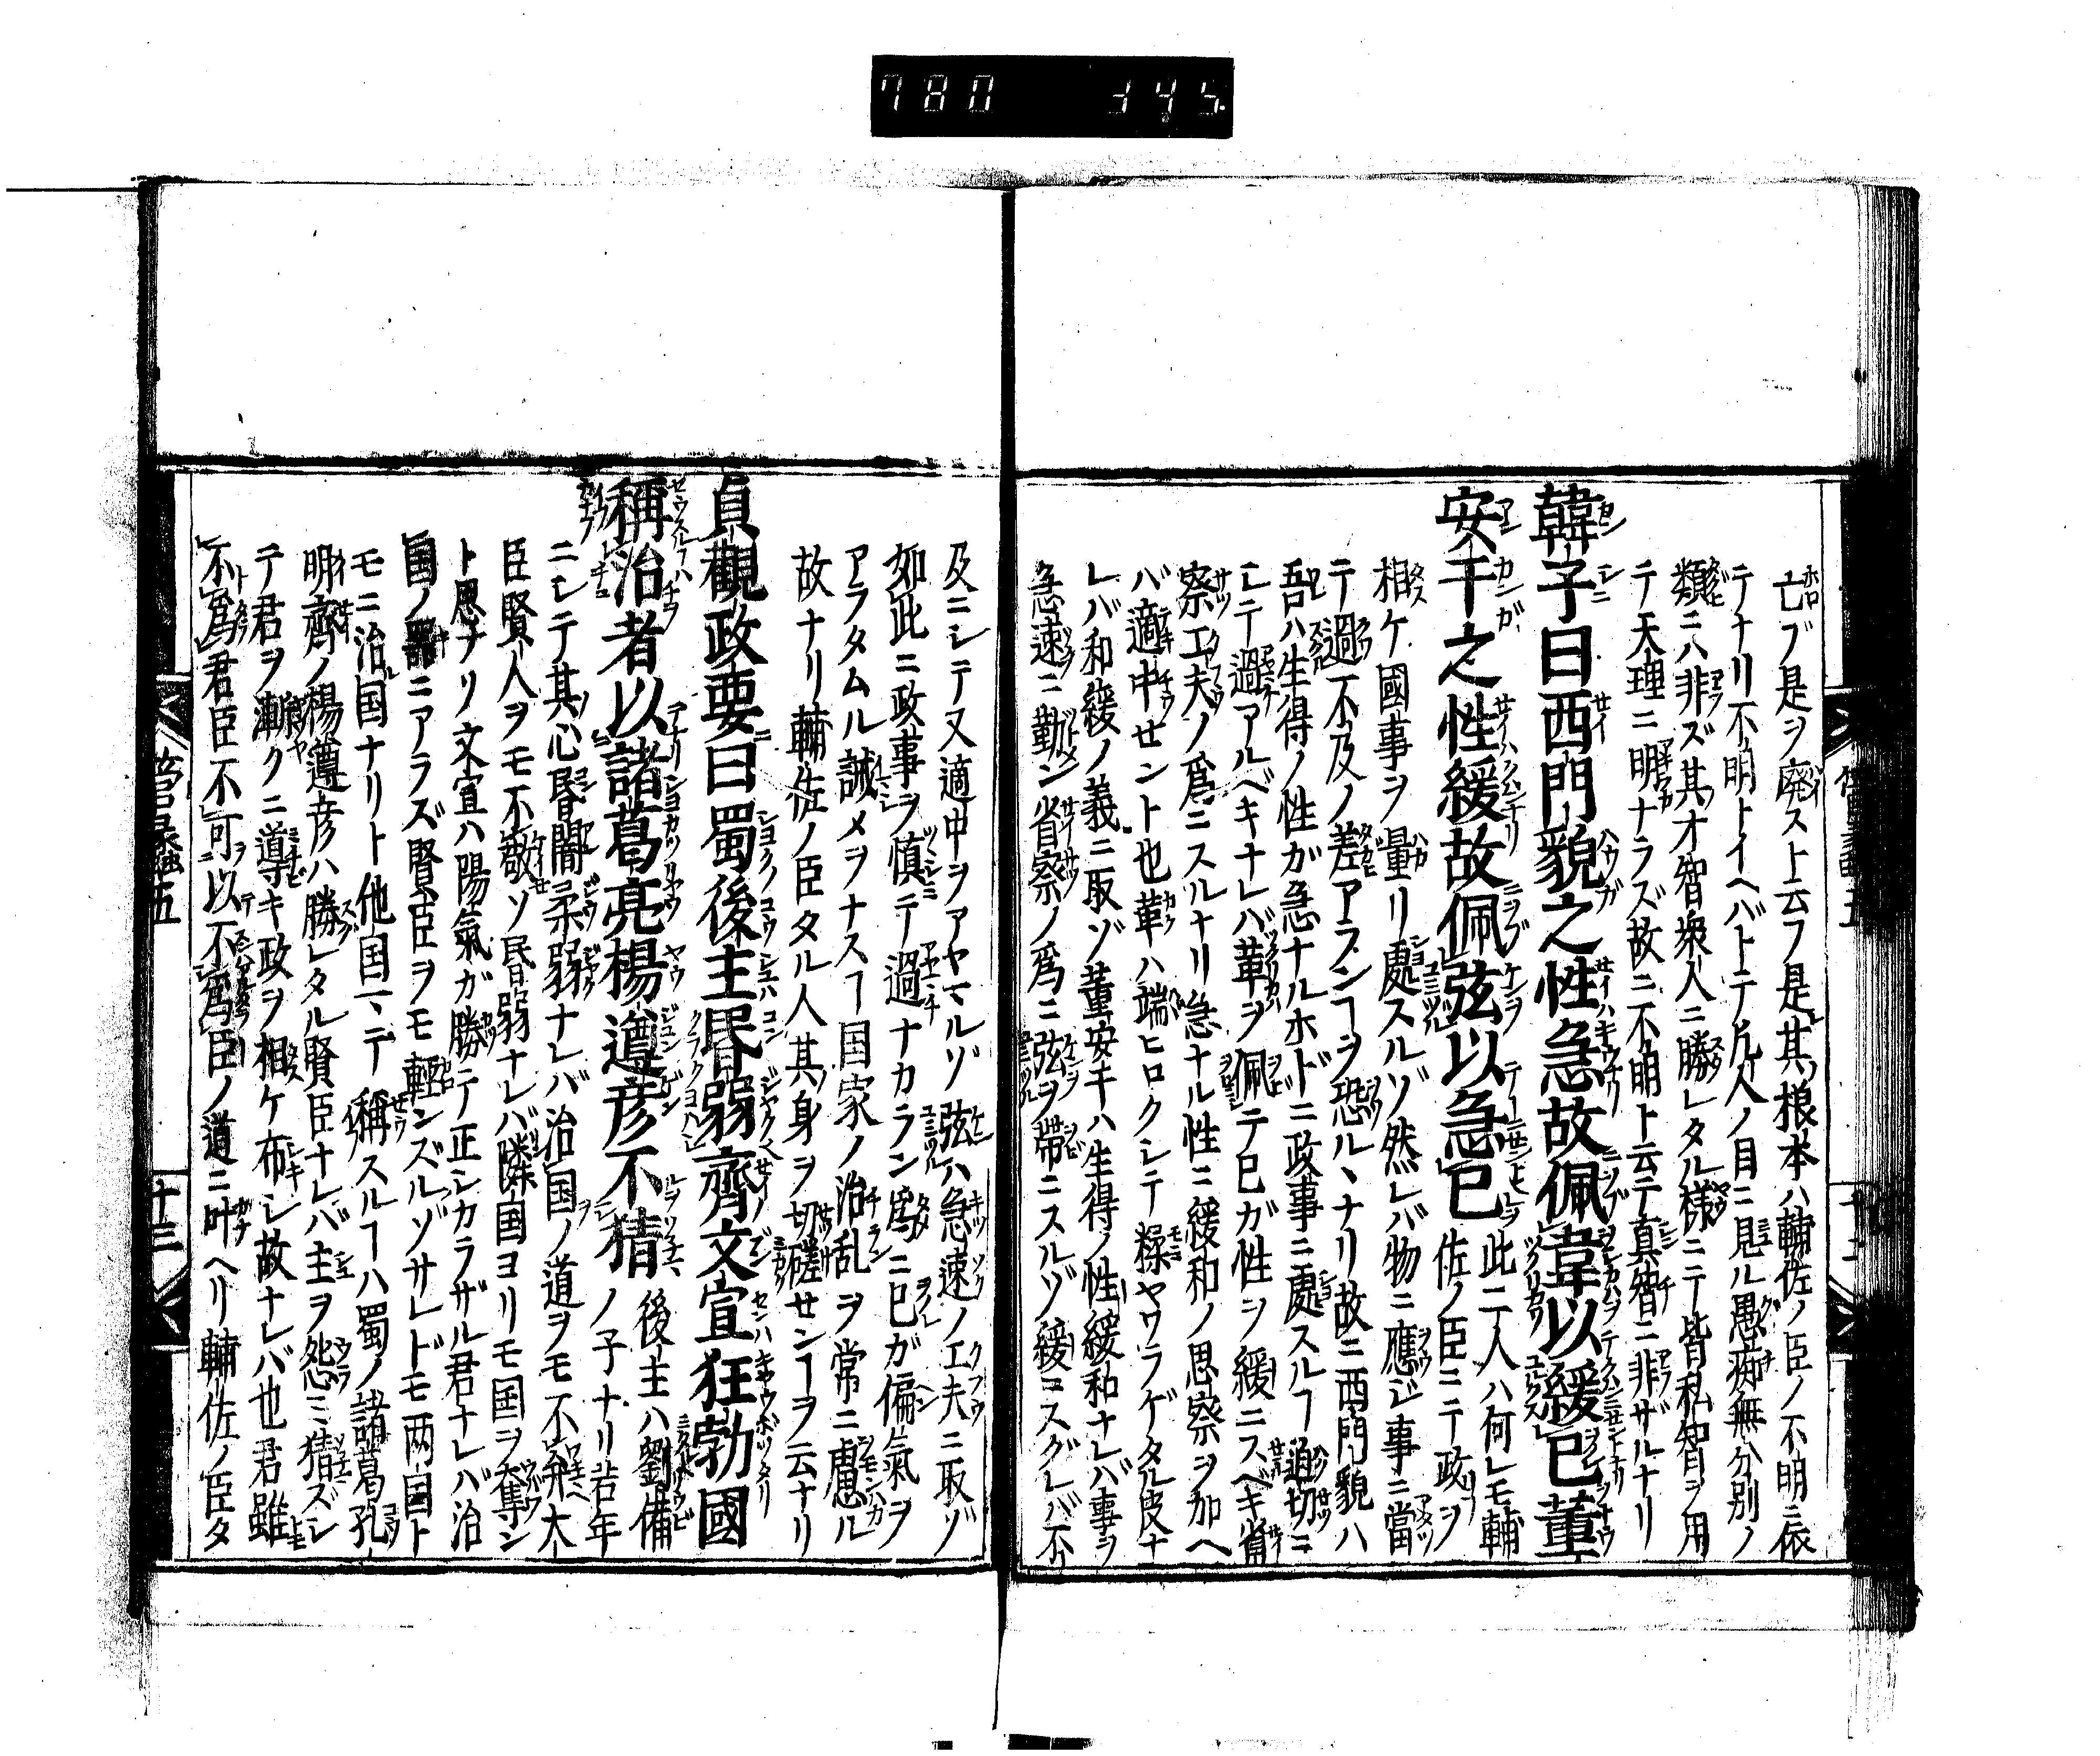 780 345
亡ブ是ヲ廃スト云フ是其根本ハ輔佐ノ臣ノ不明ニ依
テナリ不明トイヘバトテ凡人ノ目ニ見ル愚痴無分別ノ
類ニハ非ズ其才智衆人ニ勝レタル様ニテ皆私智ヲ用
テ天理ニ明ナラズ故ニ不明ト云テ真智ニ非ザルナリ
韓子曰西門貌之性急故佩韋以緩已董
安于之性緩故佩弦以急已
此二人ハ何レモ輔
佐ノ臣ニテ政ヲ
相ケ國事ヲ量リ處スルゾ然レバ物ニ應ジ事ニ當
テ過不及ノ差アランヿヲ恐ルヽナリ故ニ西門貌ハ
吾ハ生得ノ性ガ急ナルホドニ政事ニ處スルヿ迫切ニ
シテ過アルベキナレバ韋ヲ佩テ已ガ性ヲ緩ニスベキ省
察工夫ノ爲ニスルナリ急ナル性ニ緩和ノ思察ヲ加ヘ
バ適中セント也韋ハ端ヒロクシテ糅ヤワラゲタル皮ナ
レバ和緩ノ義ニ取ゾ董安于ハ生得ノ性緩和ナレバ事ヲ
急速ニ勤ン省察ノ爲ニ弦ヲ帶ニスルゾ緩ニスグレバ不
及ニシテ又適中ヲアヤマルゾ弦ハ急速ノ工夫ニ取ゾ
如此ニ政事ヲ慎テ過ナカラン爲ニ已ガ偏氣ヲ
アラタムル誡メヲナスヿ国家ノ治乱ヲ常ニ慮ル
故ナリ輔佐ノ臣タル人其身ヲ切磋センヿヲ云ナリ
貞觀政要曰蜀後主昬弱齊文宣狂勃國
稱治者以諸葛亮楊遵彦不猜
後主ハ劉備
ノ子ナリ若年
ニシテ其心昬闇柔弱ナレバ治国ノ道ヲモ不弁大
臣賢人ヲモ不敬ソ昬弱ナレバ隣国ヨリモ国ヲ奪ン
ト思ナリ文宣ハ陽氣ガ勝テ正シカラザル君ナレバ治
国ノ器ニアラズ賢臣ヲモ輕ンズルゾサレドモ两国ト
モニ治国ナリト他国マテ稱スルヿハ蜀ノ諸葛孔
明齊ノ楊遵彦ハ勝レタル賢臣ナレバ主ヲ怨ミ猜ズシ
テ君ヲ漸クニ導キ政ヲ相ケ布シ故ナレバ也君雖
不爲君臣不可以不爲臣ノ道ニ叶ヘリ輔佐ノ臣タ
十三